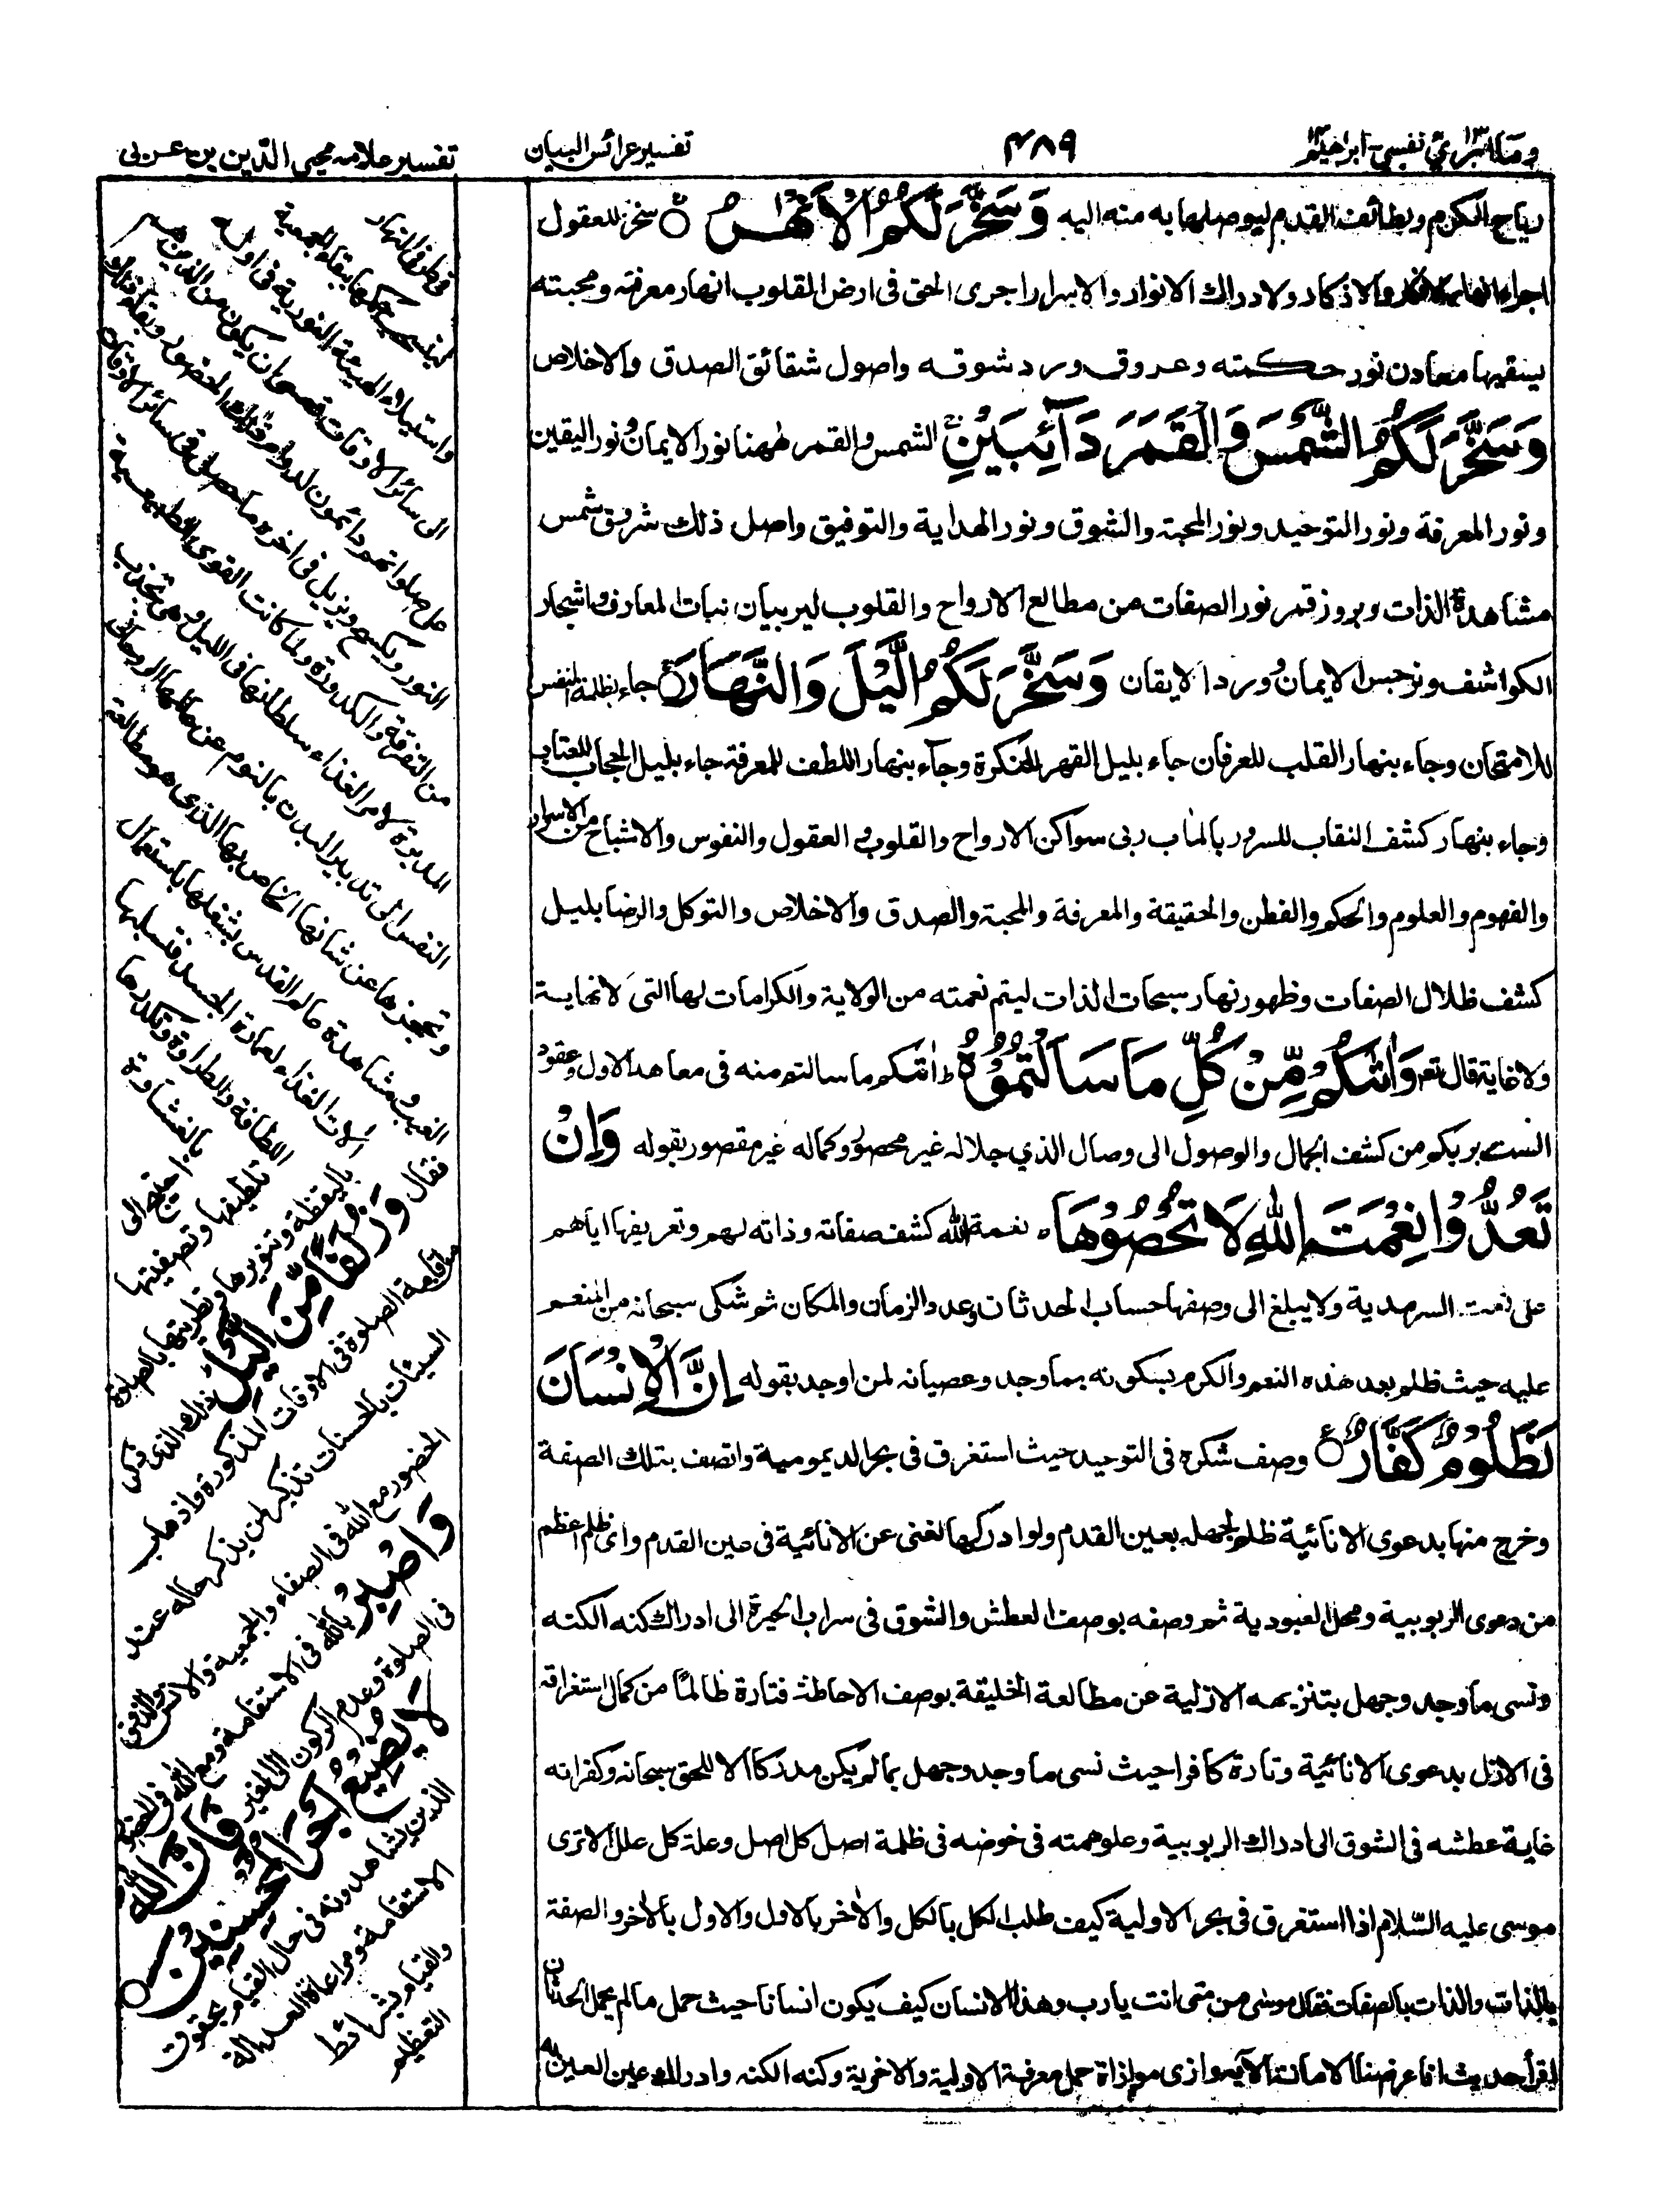 ومآ ابرئ نفسي ١٣ ابراهيم ١٤
٤٨٩
تفسير عرائس البيان
تفسير علامه محيي الدّين بن عربي
رياح الكرم وبطائف القدم ليوصلها به منه اليه وَسَخَّرَ لَكُمُ الْاَنْهٰرَ سخر للعقول
اجراء والاذكار ولادراك الانوار والاسرار اجرى الحق في ارض القلوب انهار معرفته ومحبته
يسقيها معادن نور حكمته وعروق ورد شوقه واصول شقائق الصدق والاخلاص
وَسَخَّرَ لَكُمُ الشَّمْسَ وَالْقَمَرَ دَآئِبَيْنِ الشمس والقمر ههنا نور الايمان ونور اليقين
ونور المعرفة ونور التوحيد ونور المحبة والشوق ونور الهداية والتوفيق واصل ذلك شروق شمس
مشاهدة الذات وبروز قمر نور الصفات من مطالع الارواح والقلوب ليربيان نبات المعارف واشجار
الكواشف ونرجس الايمان وورد الايقان وَسَخَّرَ لَكُمُ الَّيْلَ وَالنَّهَارَ جاء بظلمة النفس
للامتحان وجاء بنهار القلب للعرفان جاء بليل القهر للنكرة وجآء بنهار اللطف للمعرفة جاء بليل الحجاب للعتاب
وجاء بنهار كشف النقاب للسرور بالماب ربى سواكن الارواح والقلوب و العقول والنفوس والاشباح من الاسرار
والفهوم والعلوم والحكم والفطن والحقيقة والمعرفة والمحبة والصدق والاخلاص والتوكل والرضا بليل
كشف ظلال الصفات وظهور نهار سبحات الذات ليتم نعمته من الولاية والكرامات لها التي لا نهاية
ولا غاية قال تعـ وَاٰتٰىكُمْ مِّنْ كُلِّ مَا سَاَلْتُمُوْهُ ط اٰتٰىكم ما سالتم منه في معاهد الاول وعقود
الست بربكم من كشف الجمال والوصول الى وصال الذي جلاله غير محصور وكماله غير مقصور بقوله وَاِنْ
تَعُدُّوْا نِعْمَتَ اللهِ لَا تُحْصُوْهَا نعمة الله كشف صفاته وذاته لهم وتعريفها اياهم
على نعت السرمدية ولا يبلغ الى وصفها حساب الحدثان وعدد الزمان والمكان ثم شكى سبحانه من المنعم
عليه حيث ظلم بعد هذه النعم والكرم بسكونه بما وجد وعصيانه لمن اوجد بقوله اِنَّ الْاِنْسَانَ
لَظَلُوْمٌ كَفَّارٌ وصف شكره في التوحيد حيث استغرق في بحر الديمومية واتصف بتلك الصفة
وخرج منها بدعوى الانائية ظلم لجهله بعين القدم ولو ادركها لفنى عن الانائية في عين القدم واي ظلم اعظم
من دعوى الربوبية ومحل العبودية ثم وصفه بوصف العطش والشوق في سراب الحيرة الى ادراك كنه الكنه
ونسى ما وجد وجهل بتنزيهه الازلية عن مطالعة الخليقة بوصف الاحاطة فتارة ظالمًا من كمال استغراقه
في الازل بدعوى الانائية وتارة كافرا حيث نسى ما وجد وجهل بما لم يكن مدركا الا للحق سبحانه وكفرانه
غاية عطشه في الشوق الى ادراك الربوبية وعلو همته في خوضه في ظلمة اصل كل اصل وعلة كل علل الا ترى
موسى عليه السّلام اذا استغرق في بحر الاولية كيف طلب الكل بالكل والاخر بالاول والاول بالاخر والصفة
بالذات والذات بالصفات فقال موسى من متى انت يا رب وهذا الانسان كيف يكون انسانا حيث حمل ما لم يحمل الحدثان
اقرأ حديث انا عرضنا الامانة الآية وازى موازاة حمل معرفة الاولية والاخرية وكنه الكنه وادراك عين العين
فى طرفى النهار
لينسحب حكمها ببقاء الجمعية
واستيلاء الهيئة النورية فى اوله
الى سائر الاوقات فعسى ان يكون من الذين هم
على صلواتهم دائمون لدوام ذلك الحضور وبقاء ذلك
النور ويكسح ويزيل فى اخره ما حصل فى سائر الاوقات
من التفرقة والكدورة ولما كانت القوى الطبيعية
المدبرة لامر الغذاء سلطانها فى الليل وهى تجذب
النفس الى تدبير البدن بالنوم عن عالمها الروحانى
وتحجزها عن شانها الخاص بها الذى هو مطالعة
الغيب ومشاهدة عالم القدس بشغلها باستعمال
آلات الغذاء لعمارة الجسد فتسلبها
اللطافة والطراوة وتكدرها
بالغشاوة
احتيج الى
تلطيفها وتصفيتها
باليقظة وتنويرها وتطريتها بالصلوة
فقال وَزُلَفًا مِّنَ الَّيْلِ ذلك الذى ذكر
من اقامة الصلوة فى الاوقات المذكورة واذهاب
السيئات بالحسنات تذكير لمن يذكر حاله عند
الحضور مع الله فى الصفاء والجمعية والانس والذوق
وَاصْبِرْ بالله فى الاستقامة ومع الله فى الحضور
فى الصلوة وعدم الركون الى الغير فَاِنَّ اللهَ
لَا يُضِيْعُ اَجْرَ الْمُحْسِنِيْنَ
الذين يشاهدونه فى حال القيام بحقوق
الاستقامة ومراعاة العدالة
والقيام بشرائط
التعظيم